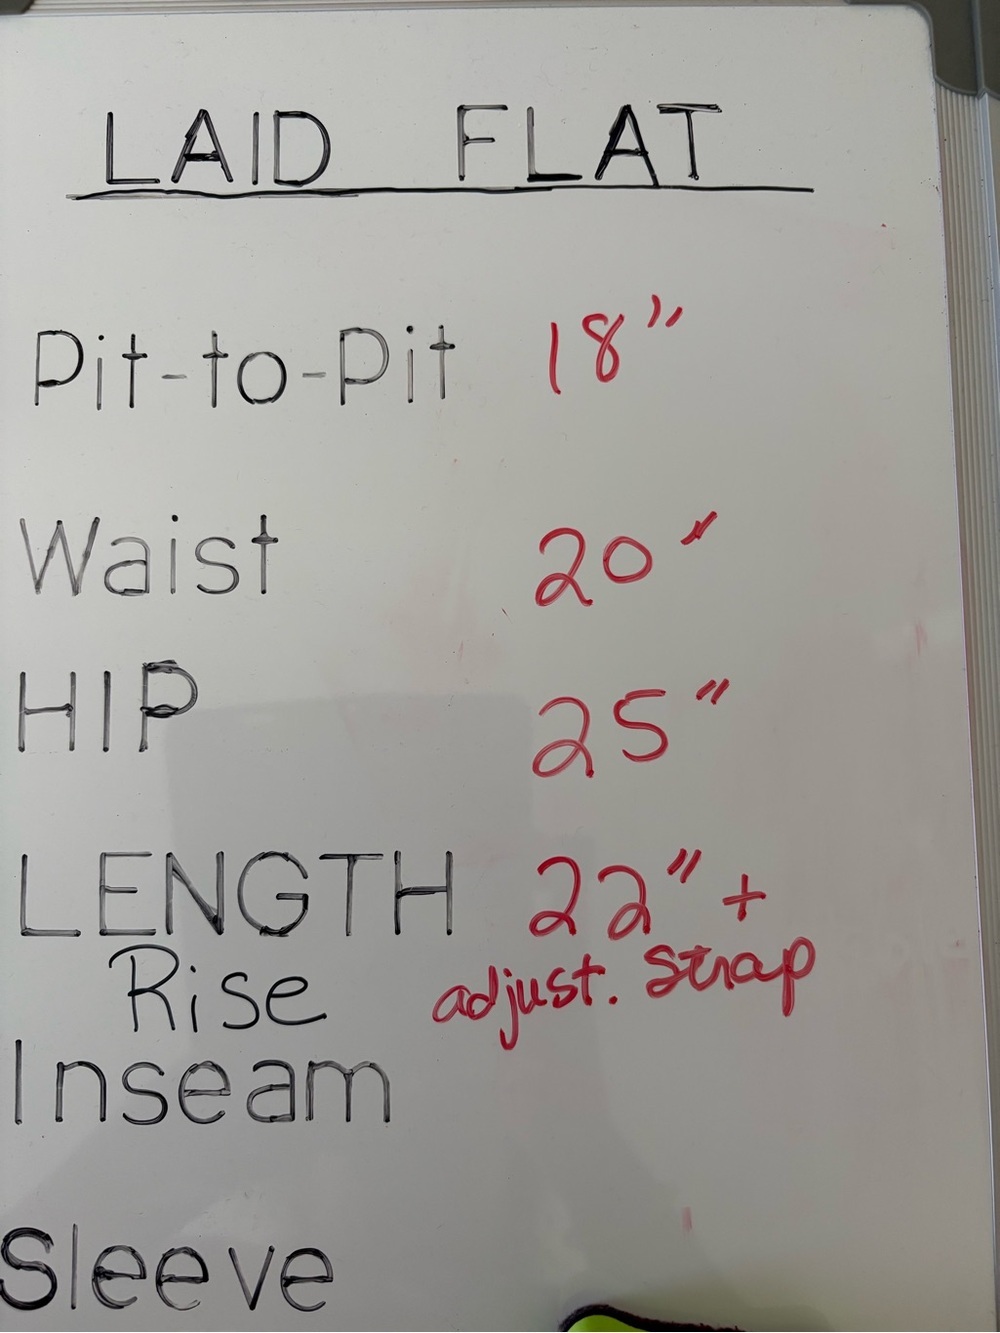 LAID FLAT
Pit-to-Pit 18"
Waist 20"
HIP 25"
LENGTH 22" +
Rise adjust. Strap
Inseam
Sleeve